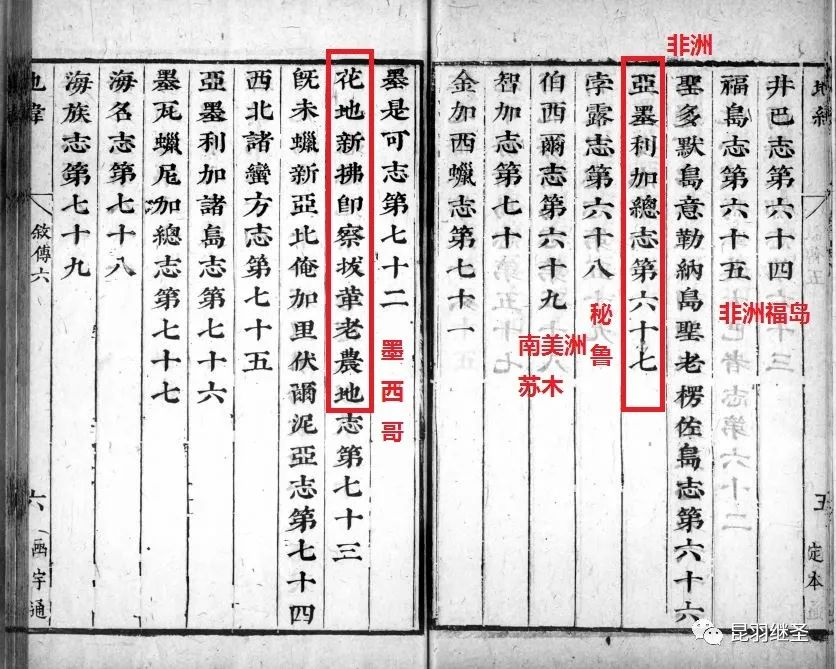 定本
井巴志第六十四
福島志第六十五
聖多默島意勒納島聖老楞佐島志第六十六
亞墨利加總志第六十七
孛露志第六十八
伯西爾志第六十九
智加志第七十
金加西蠟志第七十一
墨是可志第七十二
花地新拂郎察拔革老農地志第七十三
旣未蠟新亞比俺加里伏爾泥亞志第七十四
西北諸蠻方志第七十五
亞墨利加諸島志第七十六
墨瓦蠟尼加總志第七十七
海名志第七十八
海族志第七十九
地緯
敘傳六
六
函宇通
非洲
非洲福岛
秘鲁
南美洲
苏木
墨西哥
昆羽继圣